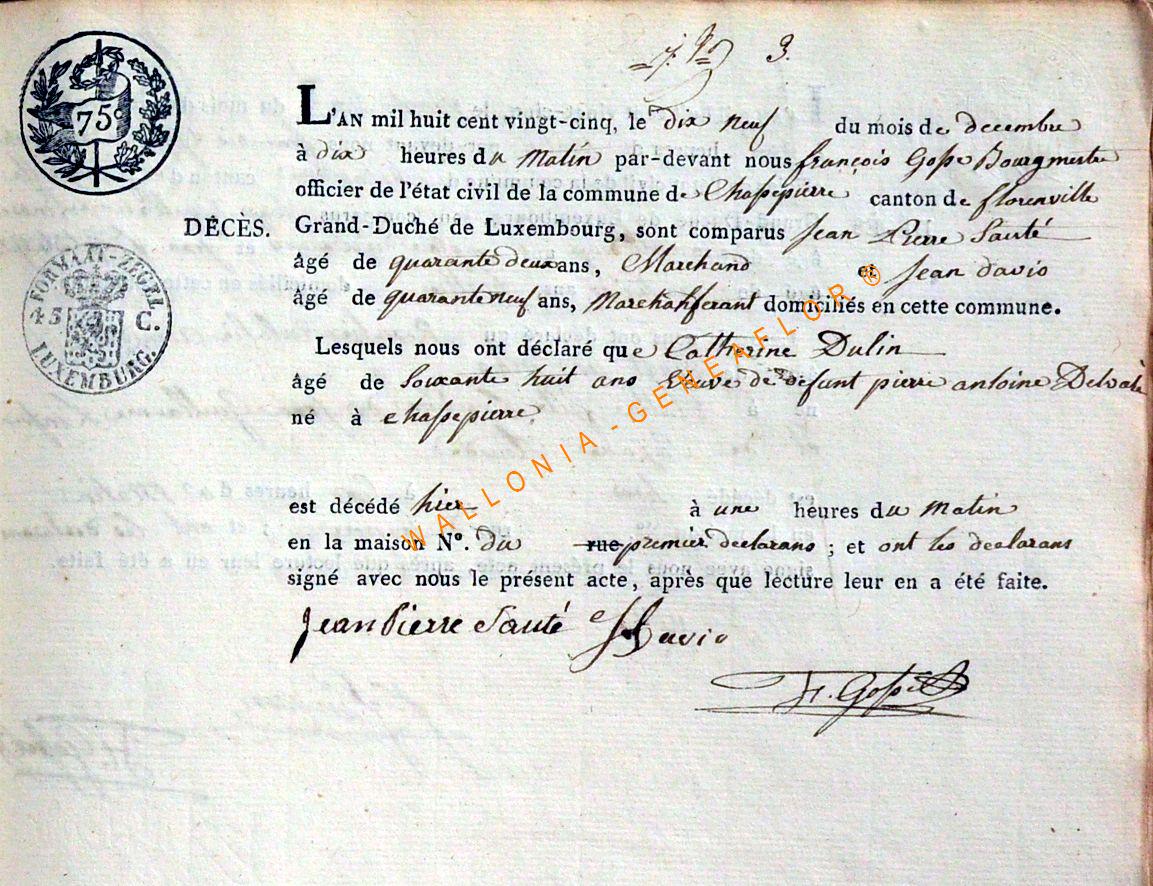 3.
75c
L'AN mil huit cent vingt-cinq, le dix neuf du mois de decembre
à dix heures du Matin par-devant nous françois Gosse Bourgmestre
officier de l'état civil de la commune de Chassepierre canton de florenville
DÉCÈS. Grand-Duché de Luxembourg, sont comparus Jean Pierre Sauté
âgé de quarante deux ans, Marchand et Jean davio
âgé de quarante neuf ans, Marchal ferant domiciliés en cette commune.
FORMAAT-ZEGEL
45 C.
LUXEMBURG.
Lesquels nous ont déclaré que Catherine Dulin
âgé de Soixante huit ans Veuve de defunt pierre antoine Delvaux
né à chassepierre
est décédé hier à une heures du Matin
en la maison N°. du rue premier declarans ; et ont les declarans
signé avec nous le présent acte, après que lecture leur en a été faite.
Jean Pierre Sauté J Davio
F. Gosse
WALLONIA-GENEAFLOR®